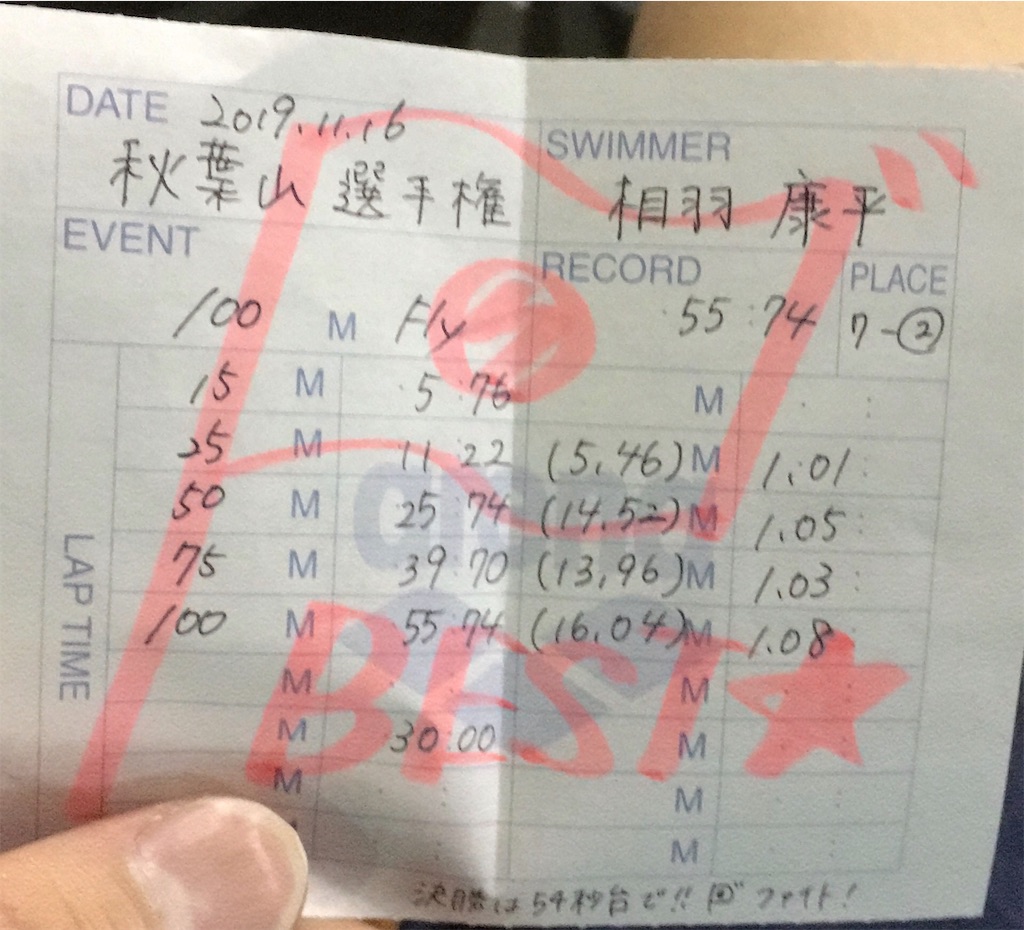 DATE 2019.11.16
秋葉山 選手権
SWIMMER
相羽 康平
EVENT
100 M Fly
RECORD
55:74
PLACE
7-②
LAP TIME
15 M 5:76 M
25 M 11:22 (5.46) M 1.01
50 M 25:74 (14.52) M 1.05
75 M 39:70 (13.96) M 1.03
100 M 55:74 (16.04) M 1.08
M M
M 30:00 M
M M
M
BEST★
決勝は54秒台で!! ファイト!